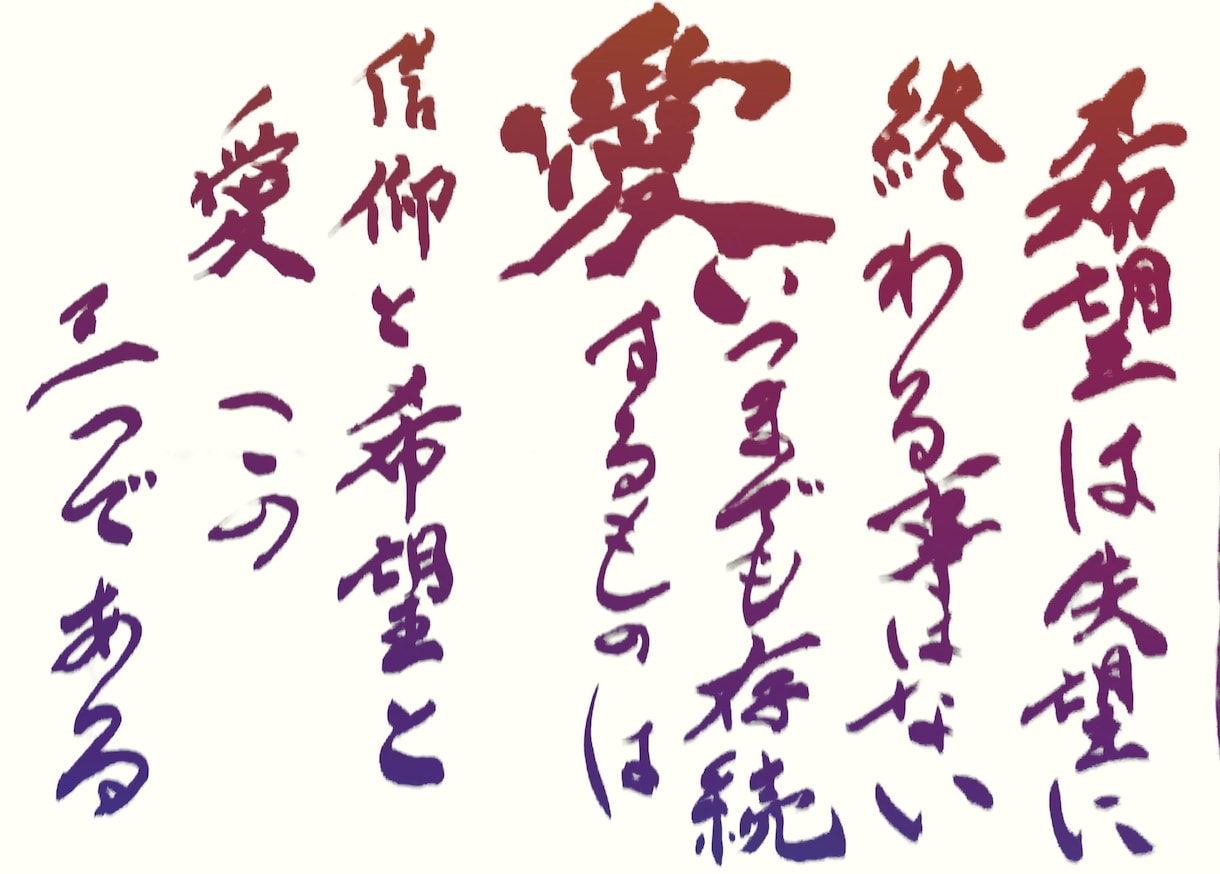 希望は失望に
終わる事はない
愛
いつまでも存続
するものは
信仰と希望と
愛 この
三つである